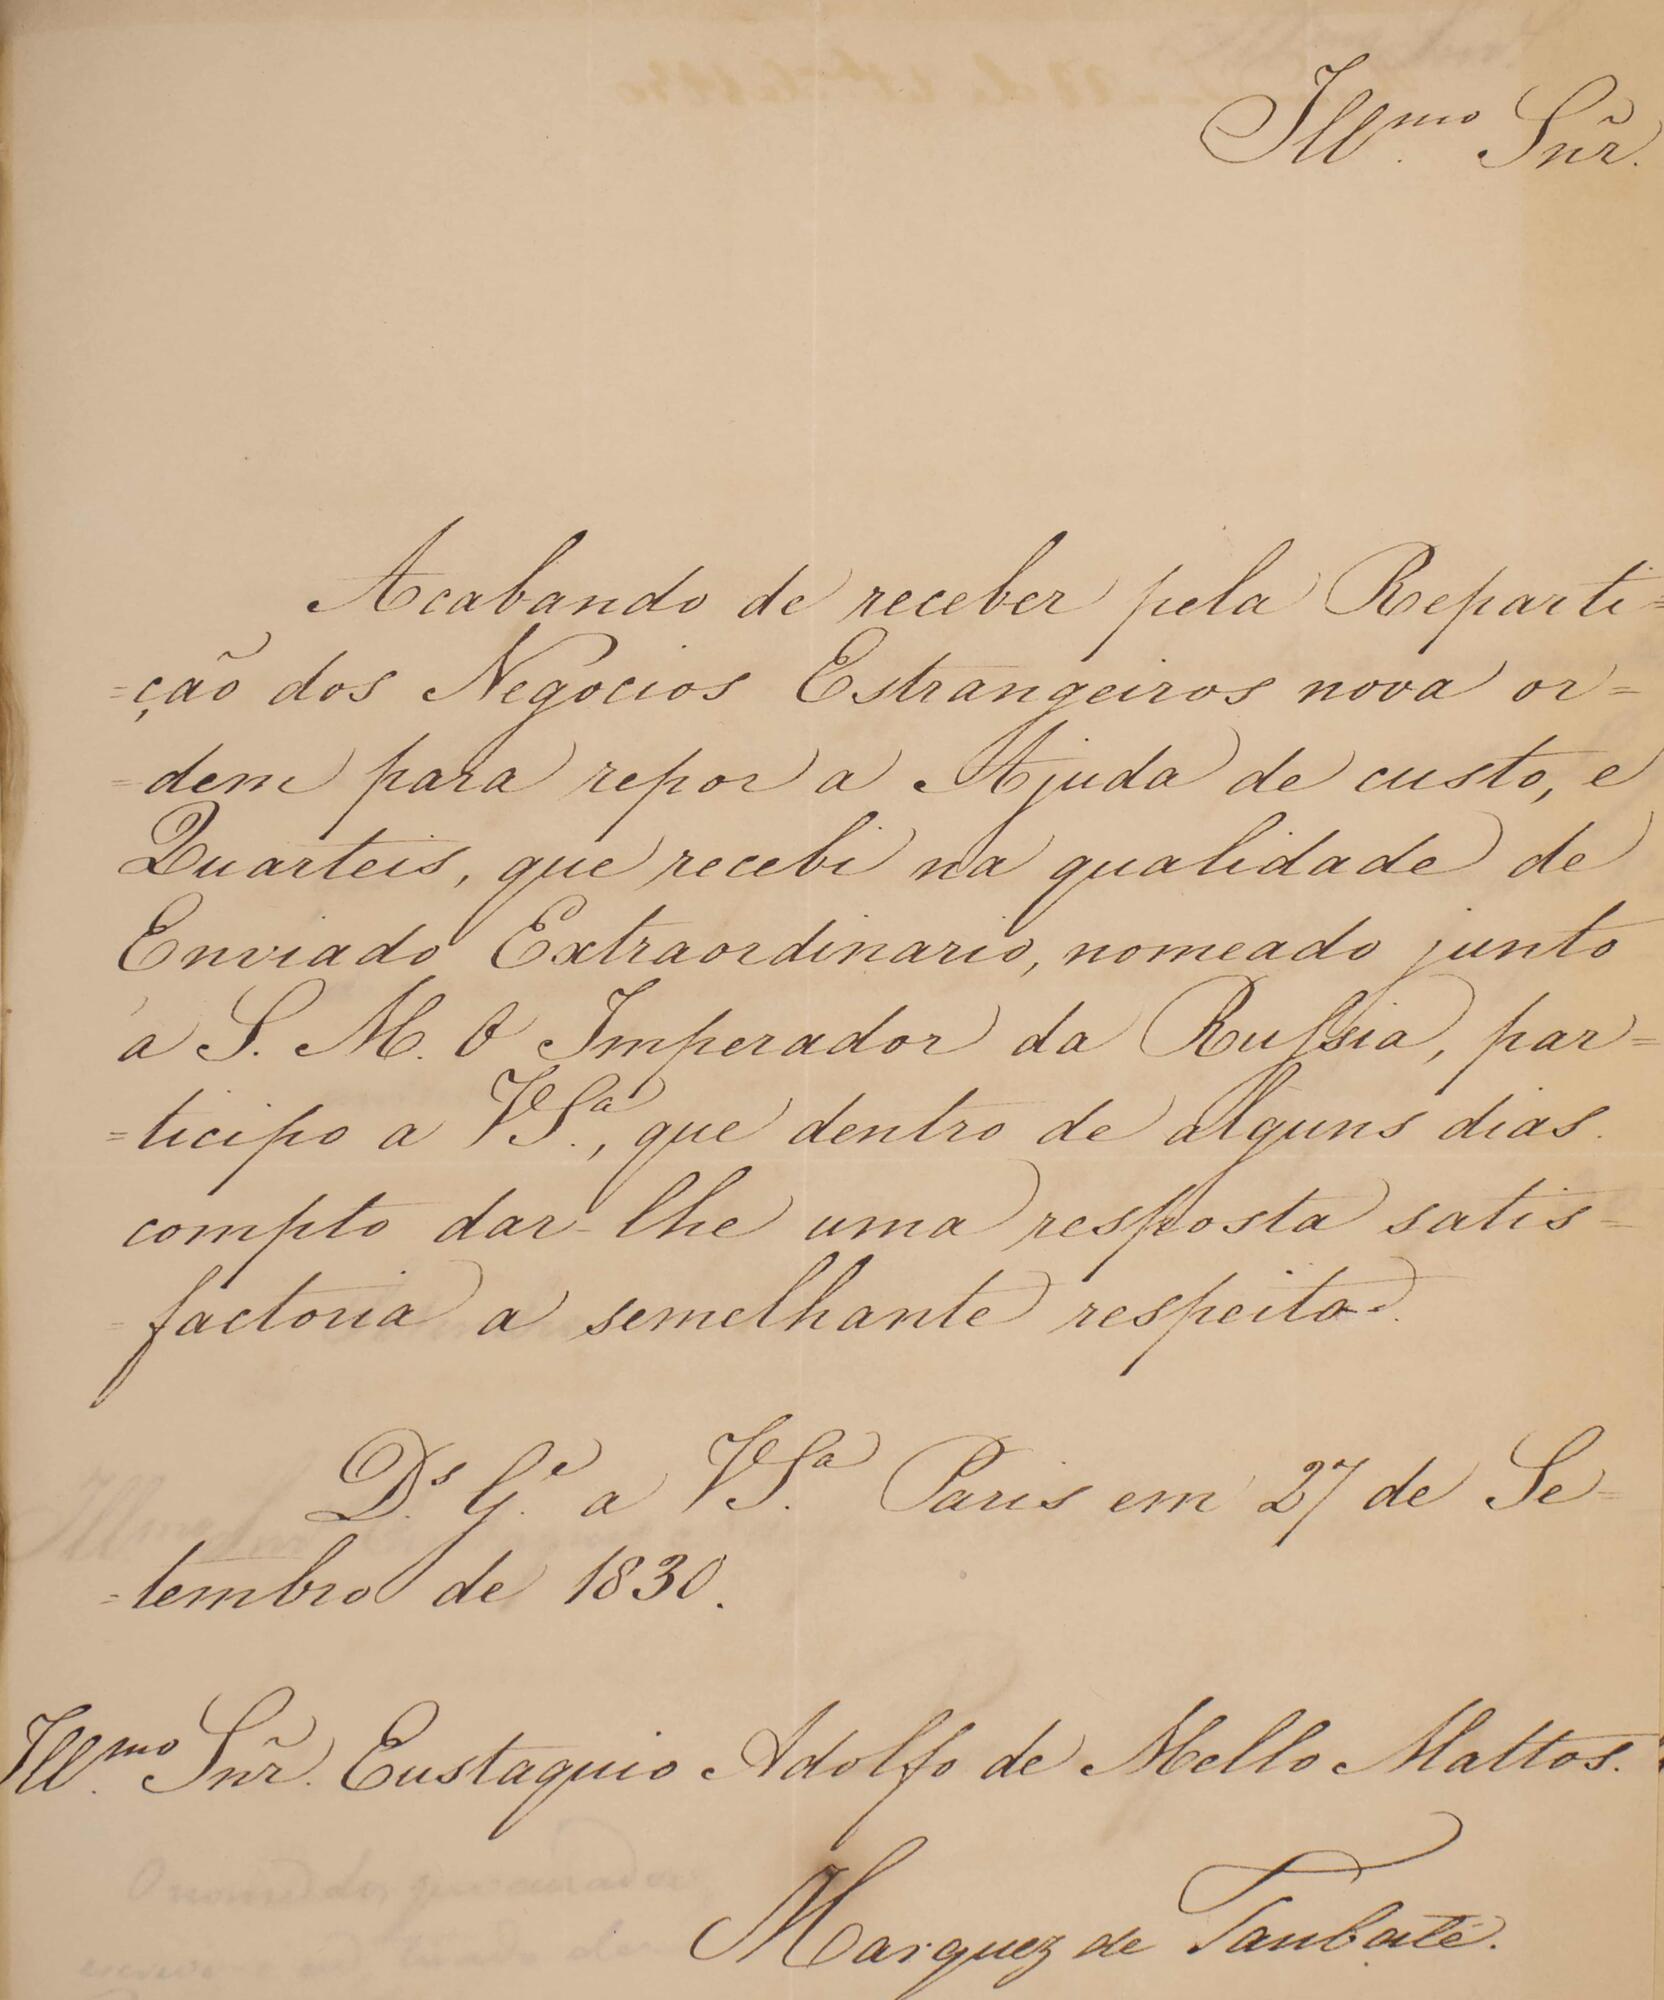 Ill.mo Sñr.
Acabando de receber pela Reparti=
=ção dos Negocios Estrangeiros nova or=
=dem para repor a Ajuda de custo, e
Quarteis, que recebi na qualidade de
Enviado Extraordinario, nomeado junto
á S. M. O Imperador da Russia, par=
=ticipo a VS.a, que dentro de alguns dias
compto dar-lhe uma resposta satis=
=factoria a semelhante respeito.
D.s G.e a VS.a Paris em 27 de Se=
=tembro de 1830.
Ill.mo Sñr. Eustaquio Adolfo de Mello Mattos.
Marquez de Taubaté.